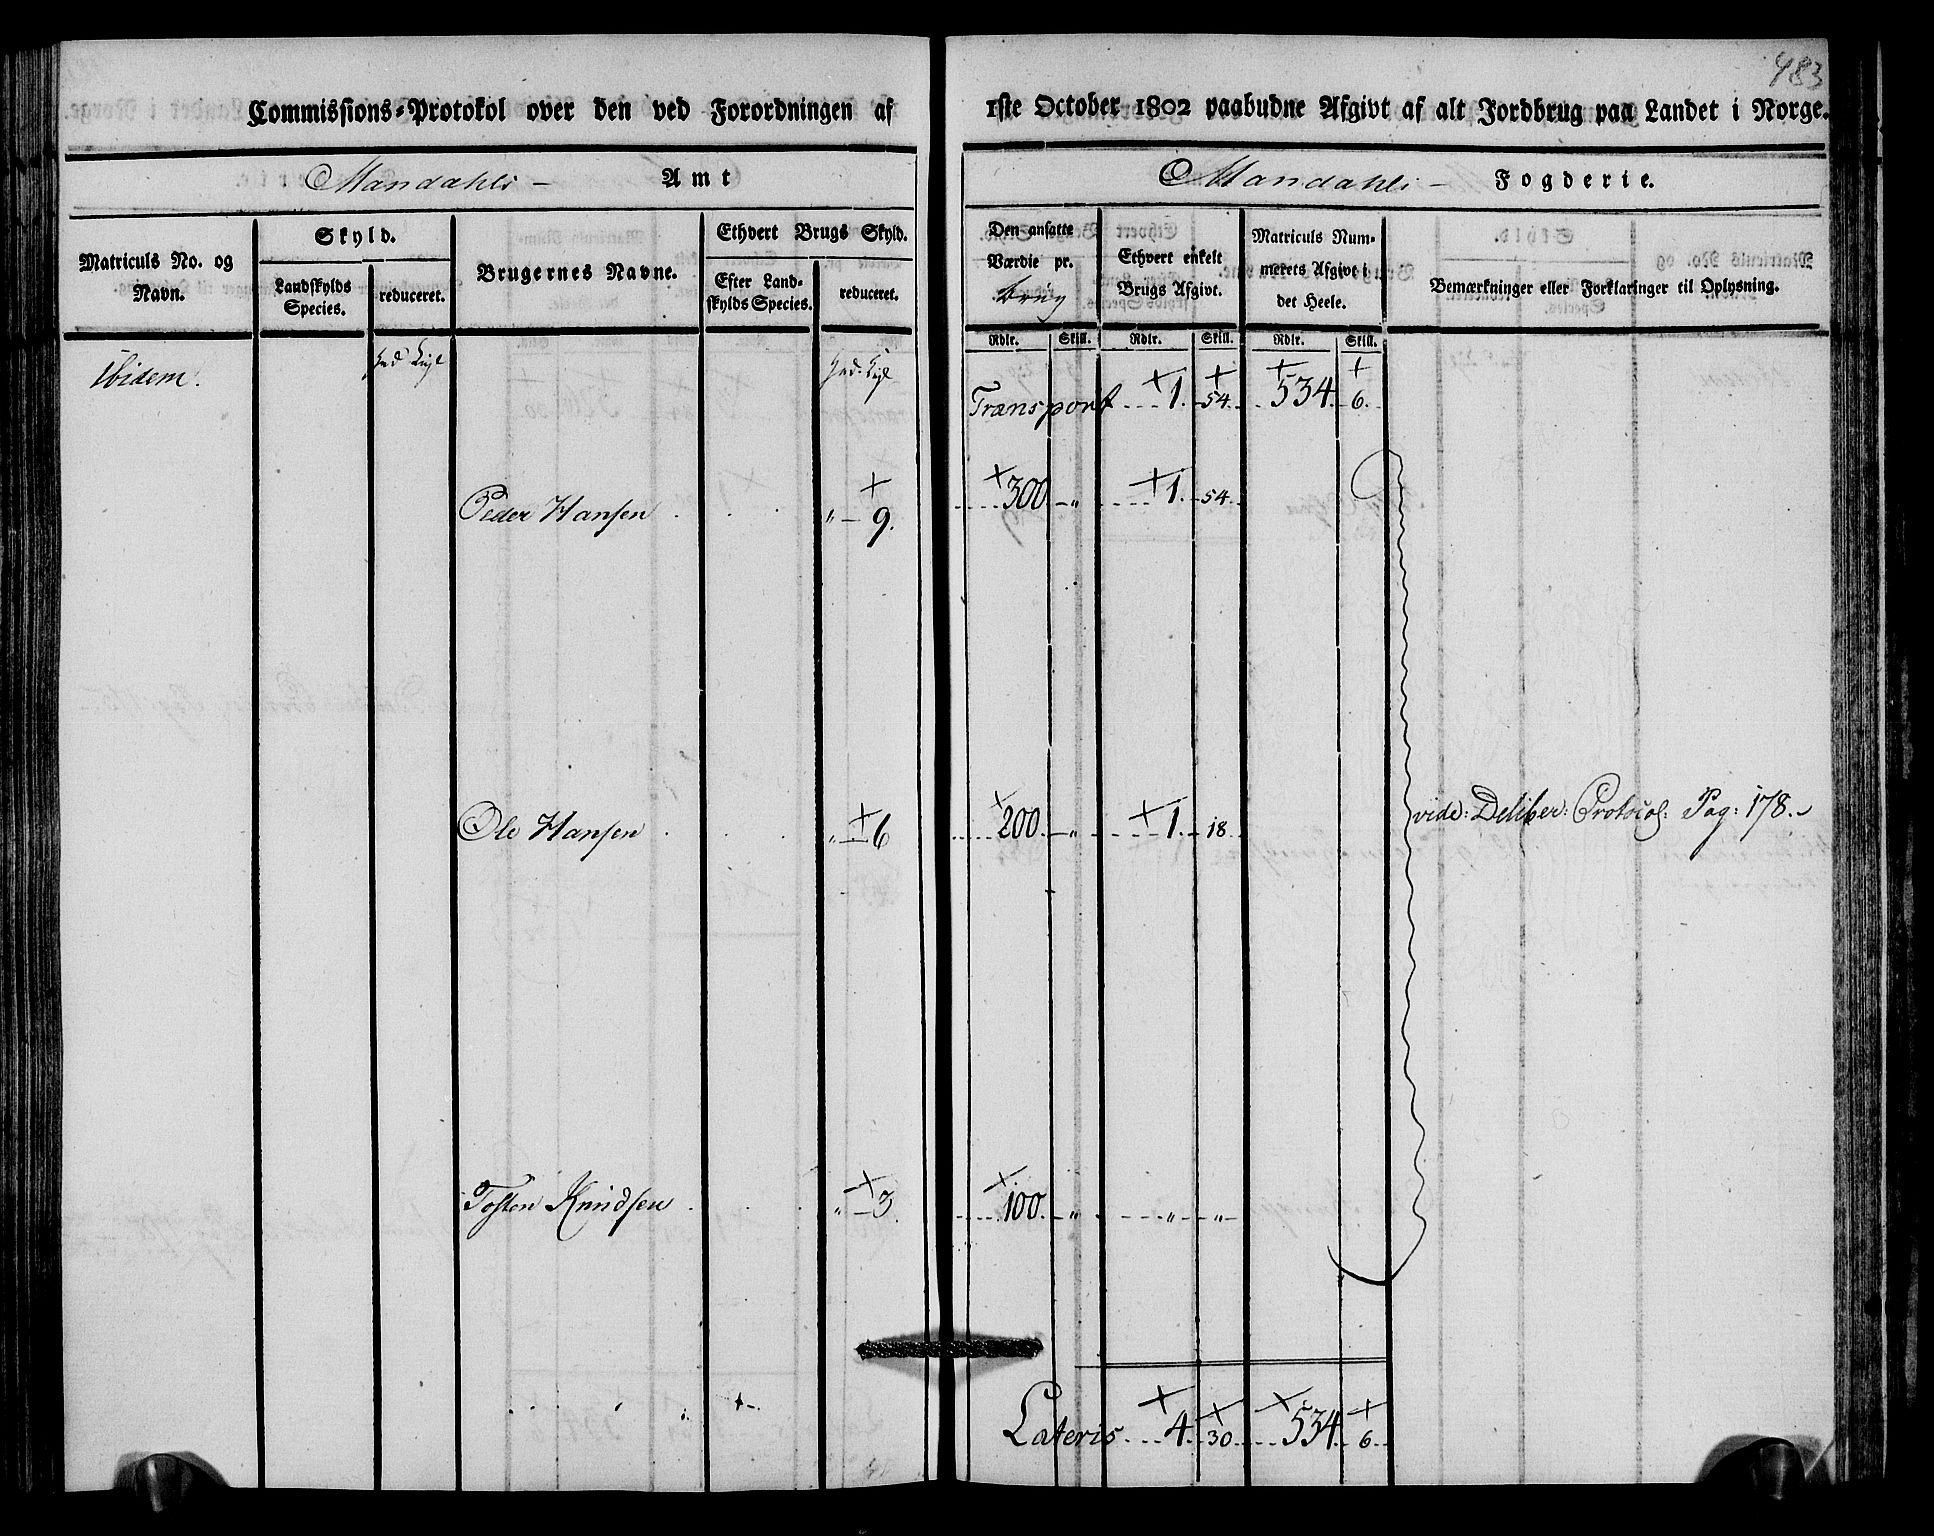 483
Commissions-Protokol over den ved Forordningen af 1ste October 1802 paabudne Afgivt af alt Jordbrug paa Landet i Norge.
Mandahls - Amt
Mandahls - Fogderie.
Matriculs No. og Navn.
Skyld.
Landskylds Species.
reduceret.
Brugernes Navne.
Ethvert Brugs Skyld.
Efter Landskylds Species.
reduceret.
Den ansatte Værdie pr. brug
Ethvert enkelt Brugs Afgivt.
Matriculs Nummerets Afgivt i det Heele.
Bemærkninger eller Forklaringer til Oplysning.
Rdlr. Skill. Rdlr. Skill. Rdlr. Skill.
Ibidem.
Transport 1. 54. 534. 6.
Peder Hansen „ 9. 300 „ 1. 54.
Ole Hansen „ 6 200. „ 1. 18. vide: Deliber: Protocol: Pag: 178.
Tosten Knudsen „ 3. 100. „ „ „
Lateris 4. 30 534. 6.